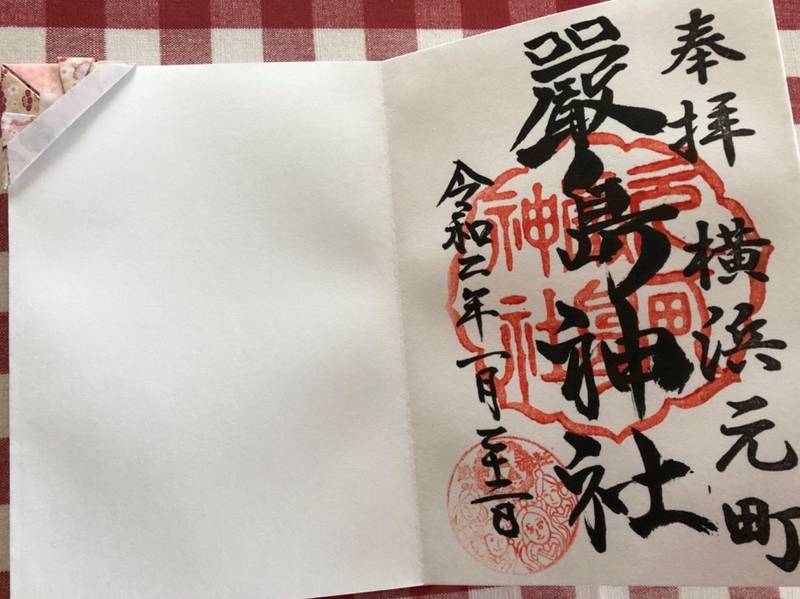 奉拝 横浜元町
嚴島神社
令和二年一月二十二日
元町
神社